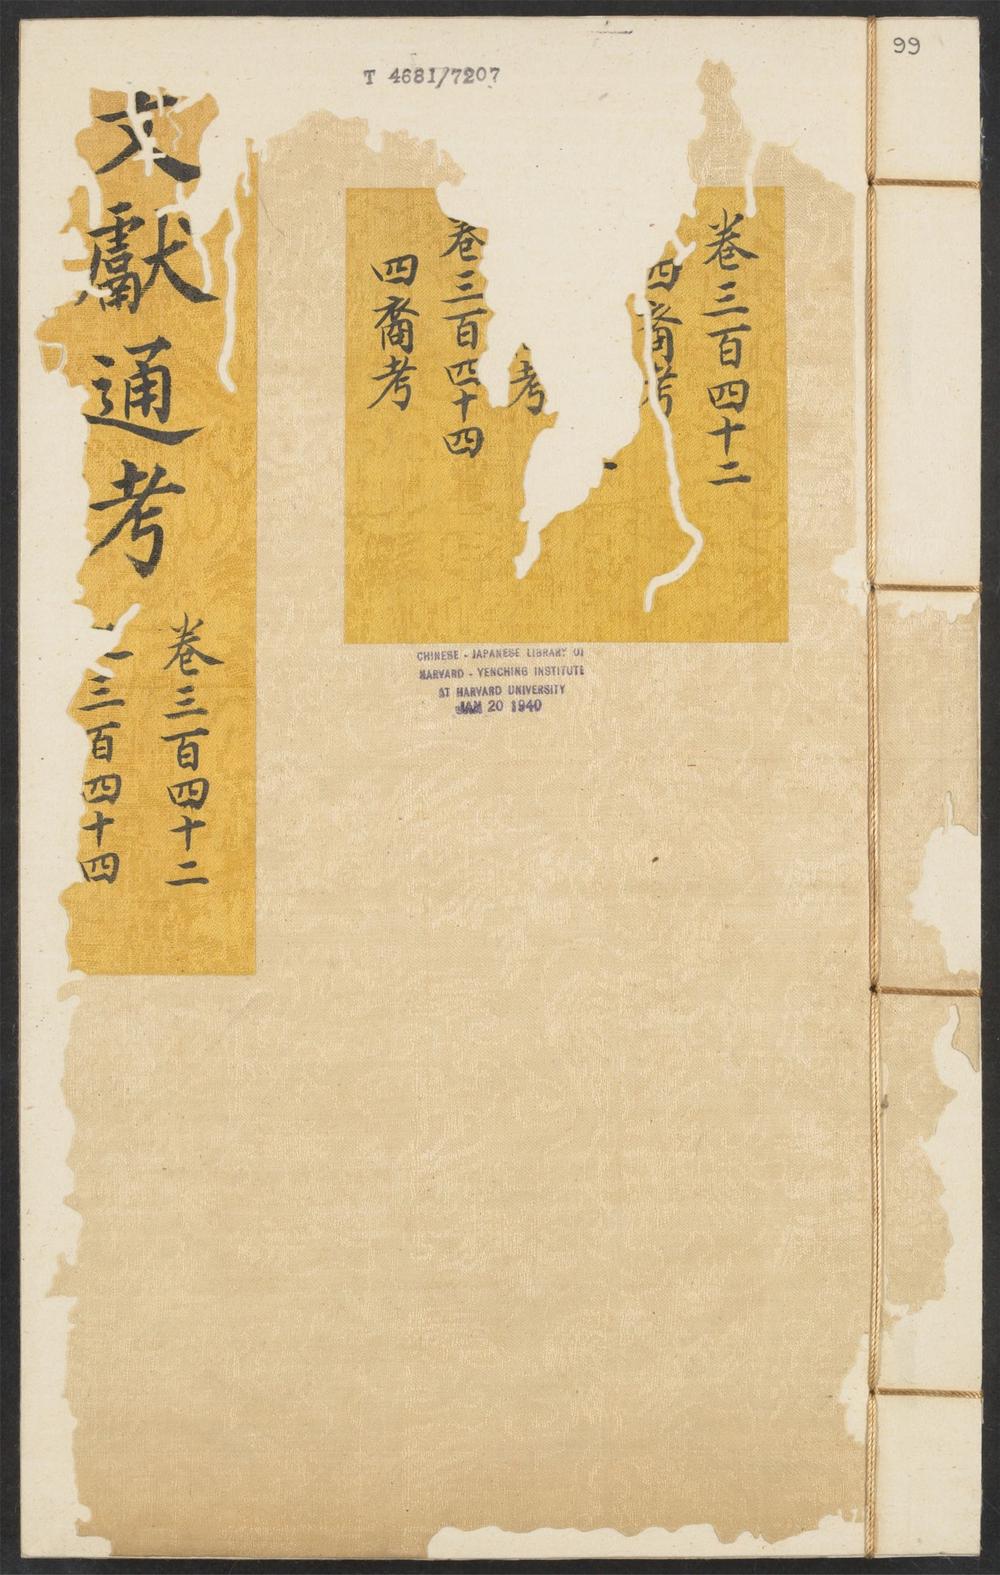 99
T 4681/7207
卷三百四十二
四裔考
考
卷三百四十四
四裔考
文獻通考
卷三百四十二
三百四十四
CHINESE - JAPANESE LIBRARY OF
HARVARD - YENCHING INSTITUTE
AT HARVARD UNIVERSITY
JAN 20 1940